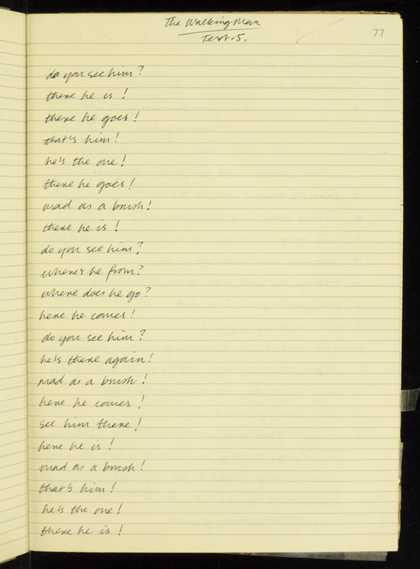 The Walking Man
Text. 5.
77
do you see him?
there he is!
there he goes!
that's him!
he's the one!
there he goes!
mad as a brush!
there he is!
do you see him?
where's he from?
where does he go?
here he comes!
do you see him?
he's there again!
mad as a brush!
here he comes!
see him there!
here he is!
mad as a brush!
that's him!
he's the one!
there he is!